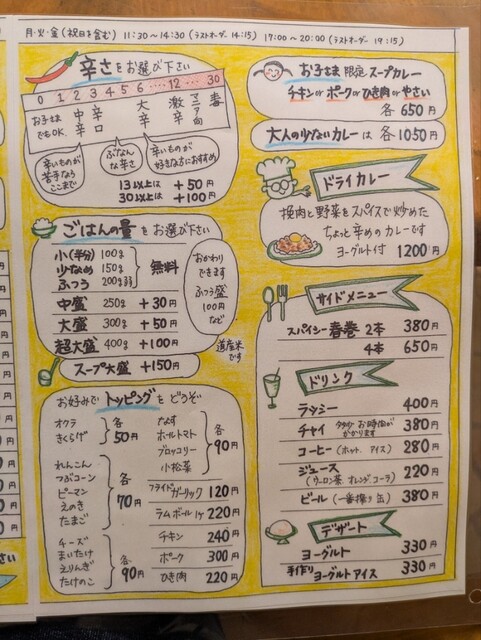 月・火・金(祝日を含む) 11:30～14:30(ラストオーダー 14:15) 17:00～20:00(ラストオーダー 19:15)
辛さをお選び下さい
0 1 2 3 4 5 6 … 12 … 30
お子さまでもOK
中辛
辛口
大辛
激辛
マニア向
毒
辛いものが苦手ならここまで
ぶなんな辛さ
辛いものが好きな方におすすめ
13以上は +50円
30以上は +100円
ごはんの量をお選び下さい
小(半分) 100g
少なめ 150g
ふつう 200g弱
無料
中盛 250g +30円
大盛 300g +50円
超大盛 400g +100円
スープ大盛 +150円
おかわりできます
ふつう盛
100円
など
道産米です
お好みでトッピングをどうぞ
オクラ
きくらげ
各50円
れんこん
つぶコーン
ピーマン
えのき
たまご
各70円
チーズ
まいたけ
えりんぎ
たけのこ
各90円
なす
ホールトマト
ブロッコリー
小松菜
各90円
フライドガーリック 120円
ラムボール1ヶ 220円
チキン 240円
ポーク 300円
ひき肉 220円
お子さま限定スープカレー
チキンorポークorひき肉orやさい
各650円
大人の少ないカレーは 各1050円
ドライカレー
挽肉と野菜をスパイスで炒めた
ちょっと辛めのカレーです
ヨーグルト付 1200円
サイドメニュー
スパイシー春巻 2本 380円
4本 650円
ドリンク
ラッシー 400円
チャイ 多少お時間がかかります 380円
コーヒー(ホット、アイス) 280円
ジュース(ウーロン茶 オレンジ、コーラ) 220円
ビール(一番搾り 缶) 380円
デザート
ヨーグルト 330円
手作りヨーグルトアイス 330円